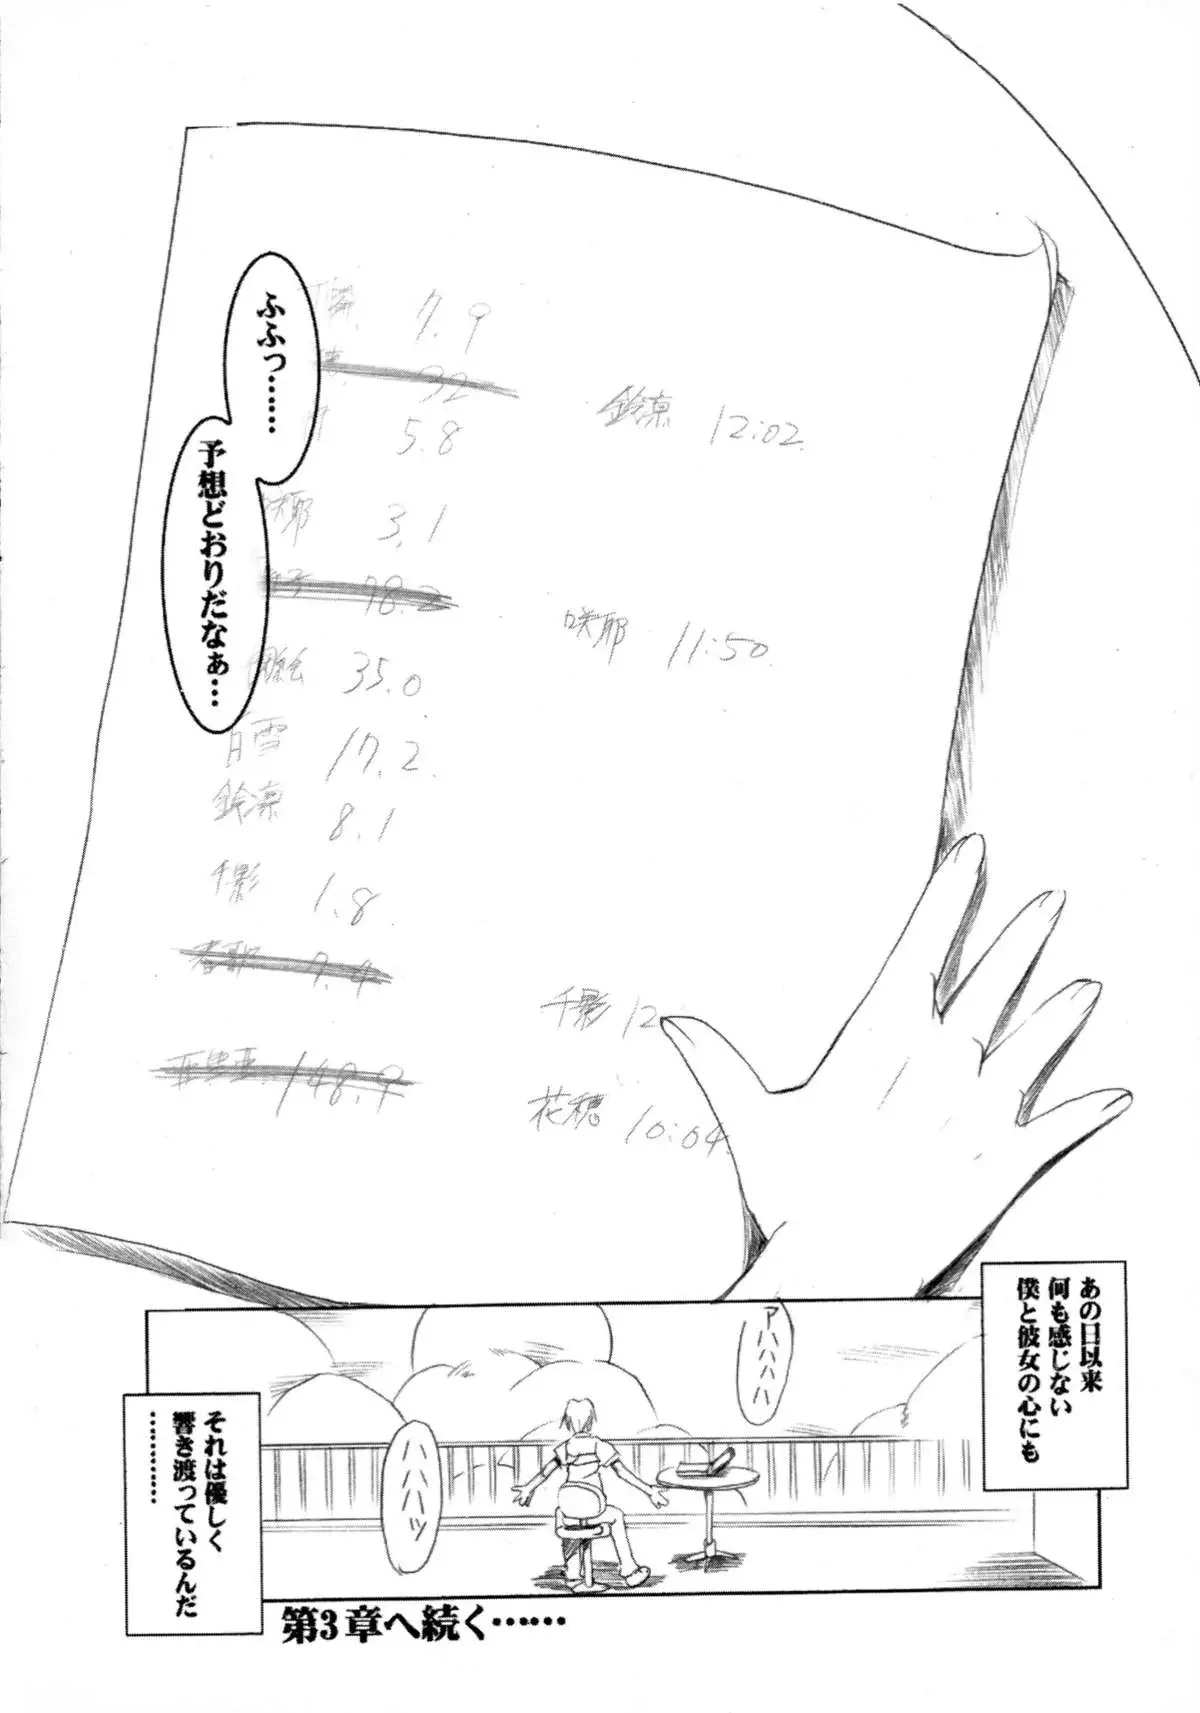 ふふっ……
予想どおりだなぁ…
7.9
32
鈴凛 12:02
5.8
咲耶 3.1
18.2
咲耶 11:50
35.0
白雪 17.2
鈴凛 8.1
千影 1.8
春歌 7.4
千影 12
亞里亞 148.9
花穂 10:04
あの日以来
何も感じない
僕と彼女の心にも
アハハハハ
ハハハハッ
それは優しく
響き渡っているんだ
…………
第3章へ続く……